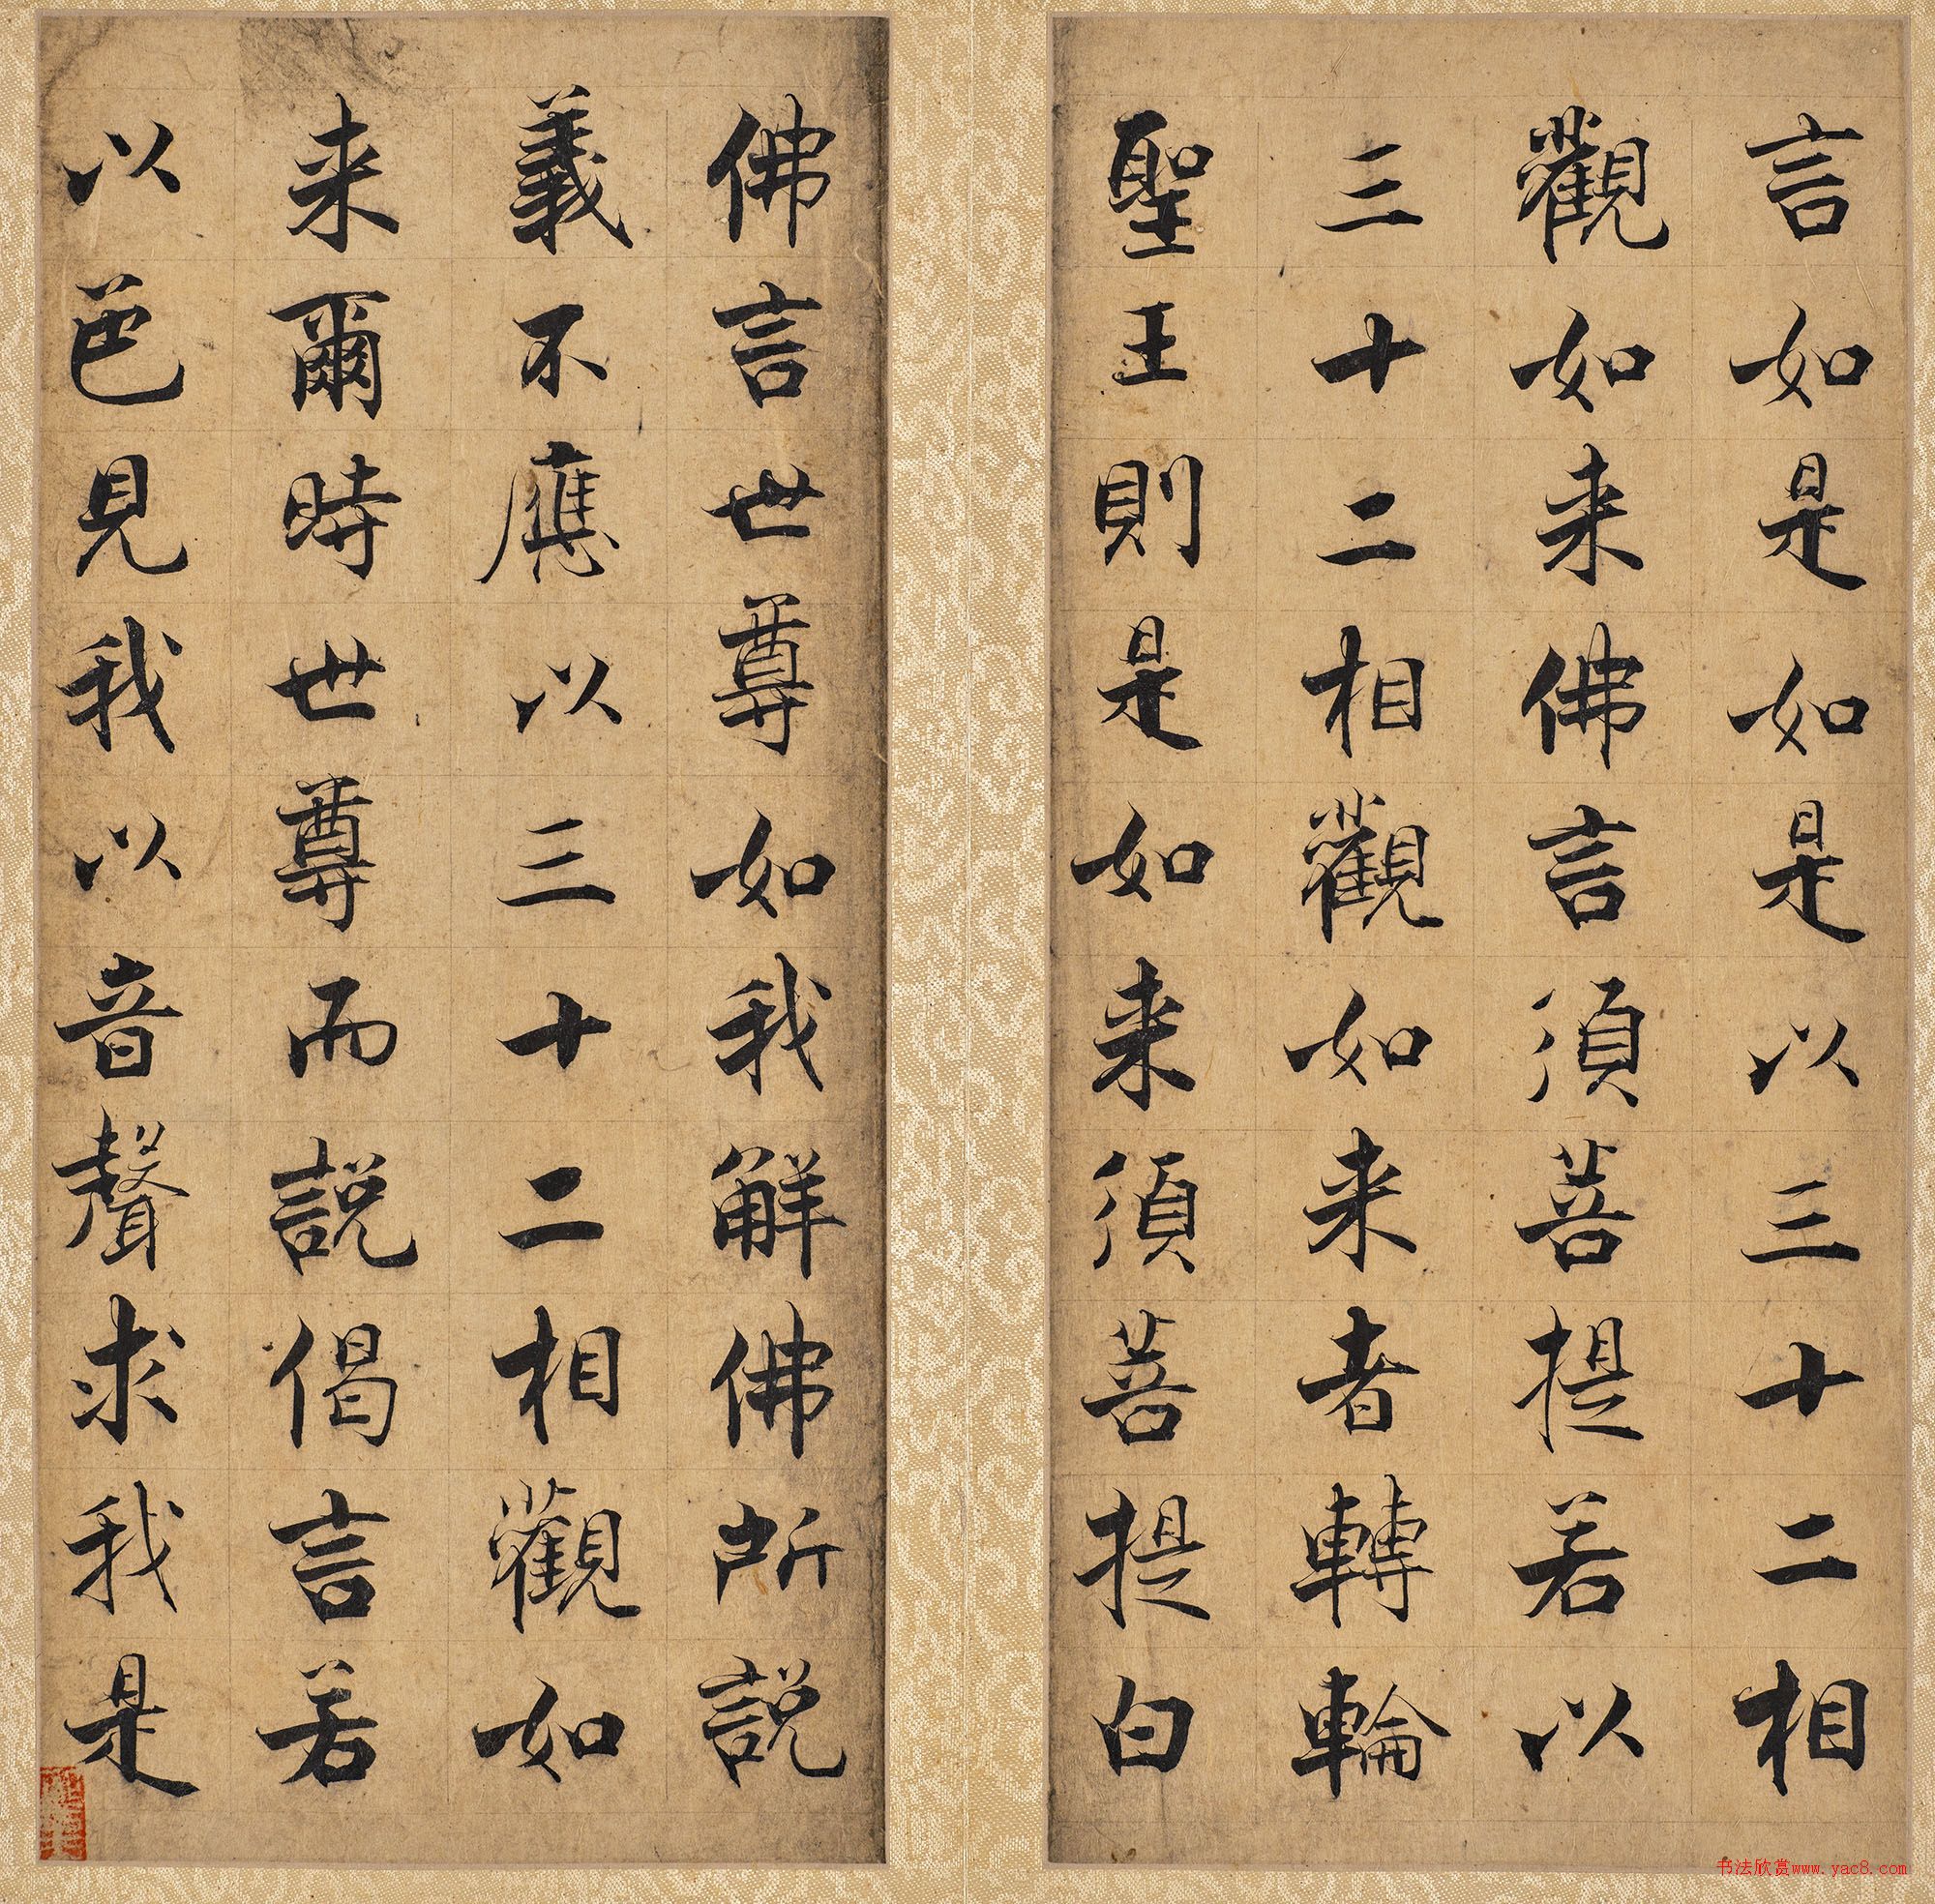 言如是如是以三十二相
觀如来佛言湏菩提若以
三十二相觀如来者轉輪
聖王則是如来湏菩提白
佛言世尊如我解佛所說
義不應以三十二相觀如
来爾時世尊而說偈言若
以色見我以音聲求我是
书法欣赏www.yac8.com